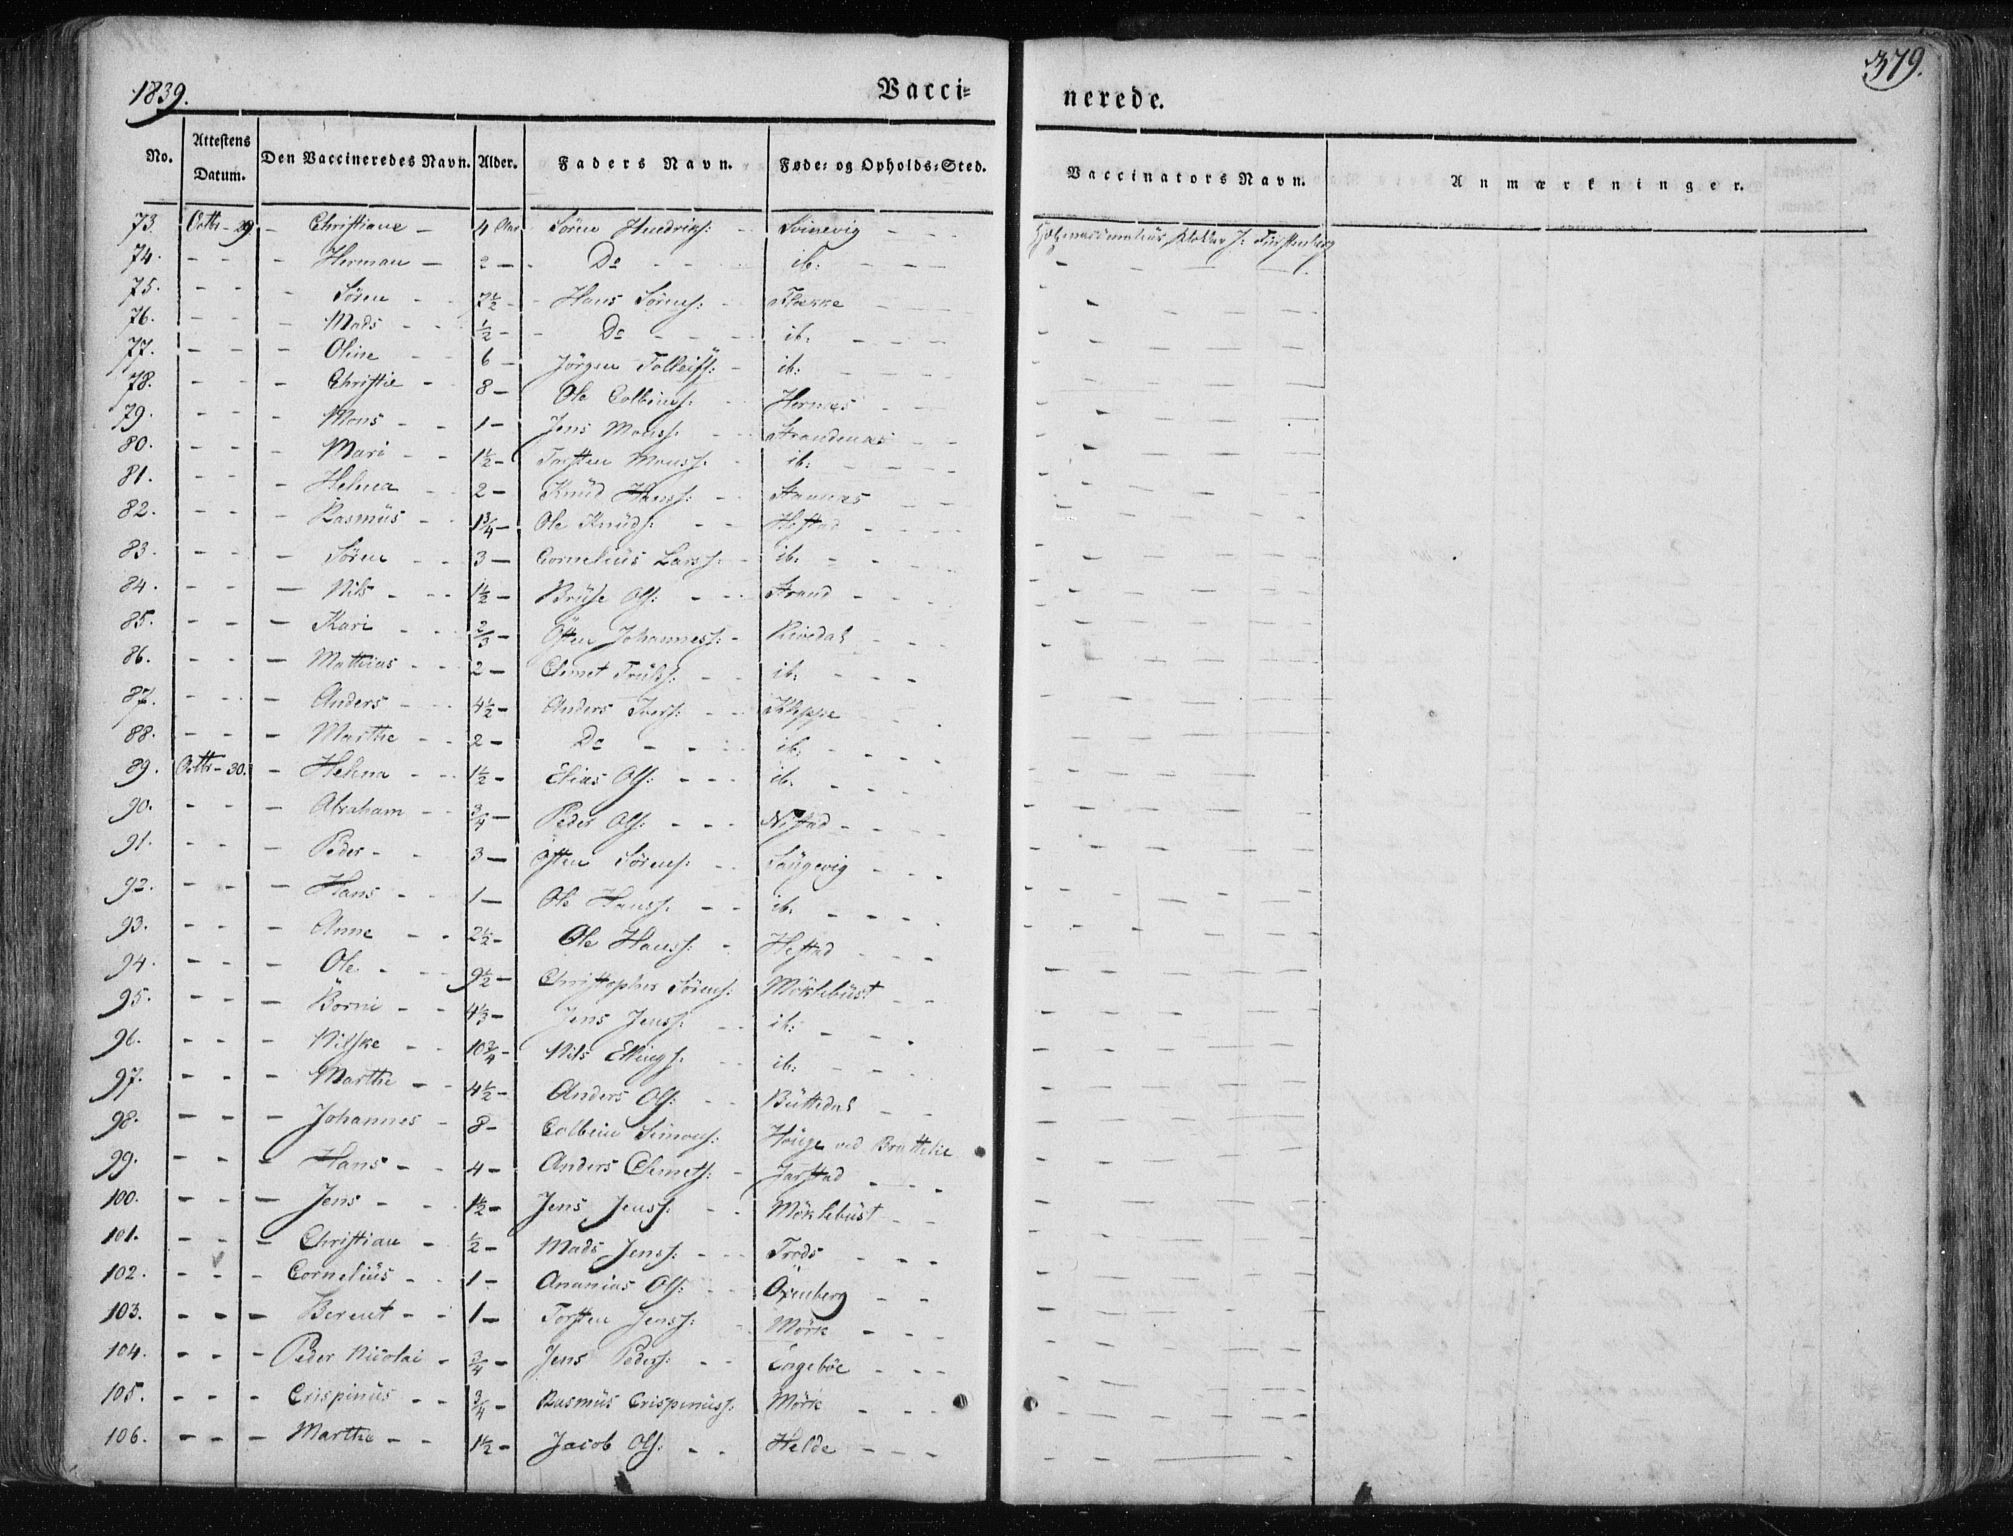 1839.
Vacci=
nerede.
379.
No. Attestens Datum. Den Vaccineredes Navn. Alder. Faders Navn. Føde= og Opholds=Sted. Vaccinators Navn. Anmærkninger.
73. Octbr - 29 - Christiane - 4 Aar Sören Hendriks: - Svinevig - - -
74. - - - Herman - 2 - - Do - - - ib: - - -
75. - - - Sören - - 7½ - - Hans Sörens: - Flekke - - -
76. - - - Mads - - ½ - - Do - - - ib: - - -
77. - - - Oline - - 6 - Jörgen Tolleifs: - ib: - - -
78. - - - Christie - 8 - Ole Colbens: - Hernes - - -
79. - - - Mons - - 1 - Jens Monss: - - Strandenæs - -
80. - - - Mari - - 1½ - Torsten Monss: - ib: - - -
81. - - - Helena - - 2 - Knüd Hanss: - - - -
82. - - - Rasmüs - - 1¾ - Ole Knüds: - - Hestad - - -
83. - - - Sören - - 3 - Cornelius Larss: - ib: - - -
84. - - - Nils - - - 1½ - Brüse Ols: - - - Strand - - -
85. - - - Kari - - - ⅔ - Östen Johanness: - Rivedal - - -
86. - - - Mathias - - 2 - Clemet Trüls: - - ib: - - -
87. - - - Anders - - 4½ - Anders Ivers: - - Kleppe - - -
88. - - - Marthe - - 2 - Do - - - ib: - - -
89. Octbr - 30. - Helena - - 1½ - Elias Ols: - - - ib: - - -
90. - - - Abraham - - ¾ - Peder Ols: - - - Nistad - - -
91. - - - Peder - - 3 - Östen Sörens: - - Laugevig - - -
92. - - - Hans - - - 1 - Ole Hanss: - - ib: - - -
93. - - - Anne - - 2½ - Ole Hanss: - Hestad - - -
94. - - - Ole - - - 9½ - Christopher Sörens: Möklebüst - -
95. - - - Börni - - 4⅓ - Jens Jenss: - - ib: - -
96. - - - Nilske - - 10¾ - Nils Ellings: - - ib: - - -
97. - - - Marthe - - 4½ - Anders Ols: - - Büttedal - -
98. - - - Johannes - 8 - Colbein Simons: Höüge ved Brattelie
99. - - - Hans - - 4 - Anders Clemets: - Jarstad - - -
100. - - - Jens - - - 1½ - Jens Jenss: - - Möklebüst - -
101. - - - Christian - ½ - Mads Jenss: - - - Trods - - -
102. - - - Cornelius - - 1 - Ananias Ols: - - Öxenberg - -
103. - - - Berent - - 1 - Torsten Jenss: - - Mörk - - -
104. - - - Peder Nicolai - ¾ - Jens Peders: - - Engeböe - - -
105. - - - Crispinüs - - ¾ - Rasmüs Crispinuss: Mörk - - -
106. - - - Marthe - - 1½ - Jacob Ols: - - Helde - - -